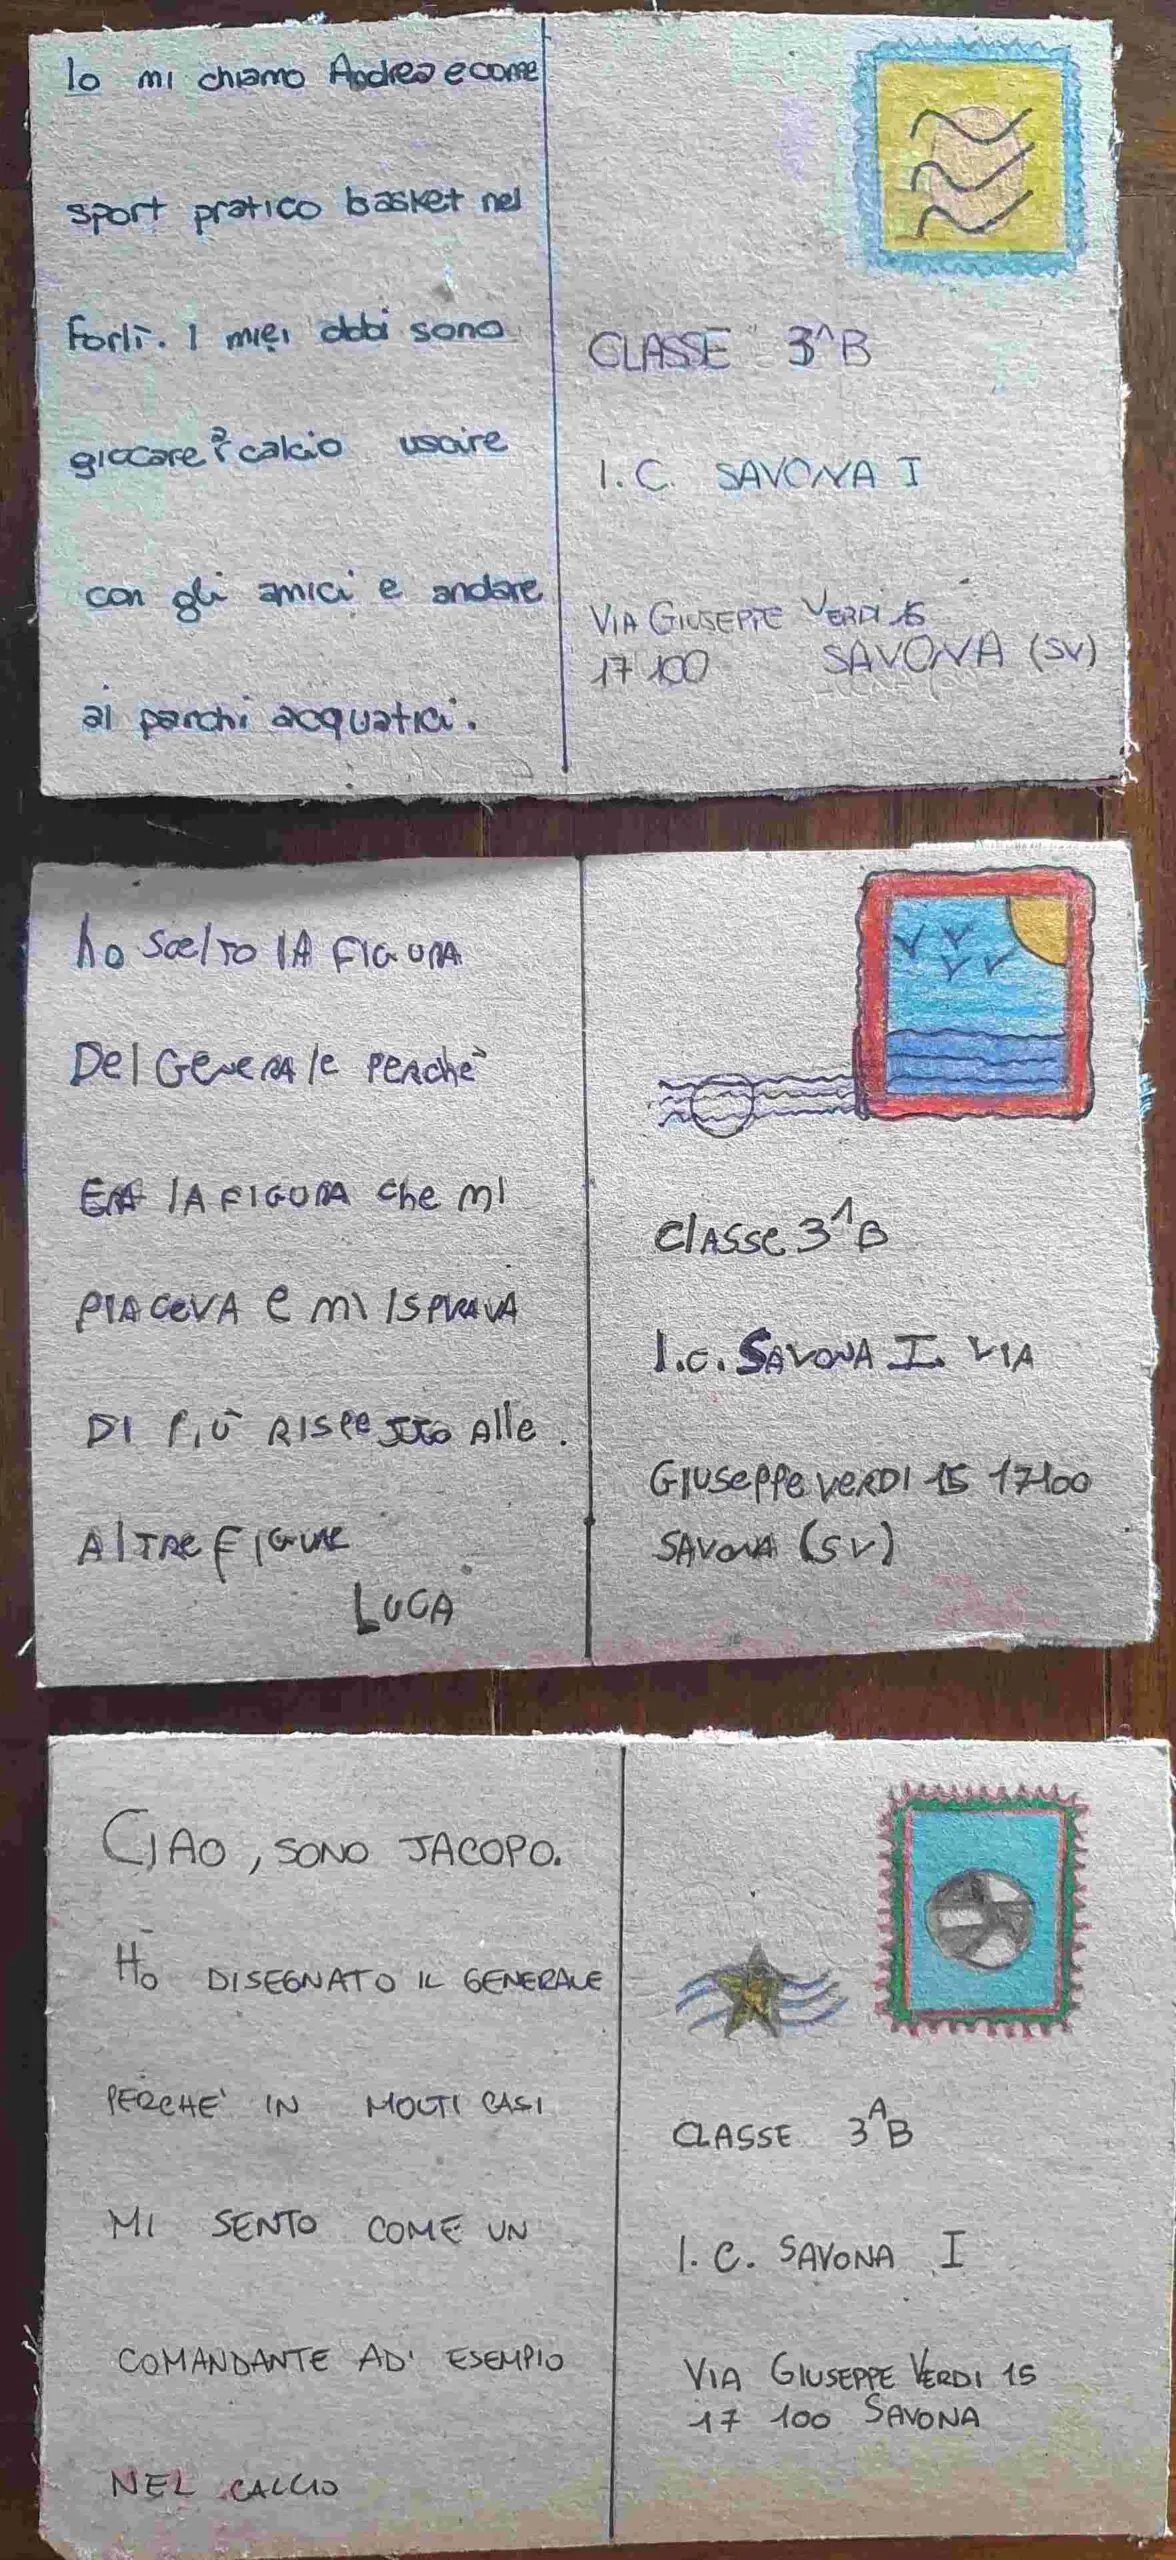 Io mi chiamo Andrea e come
sport pratico basket nel
Forlì. I miei obbi sono
giocare a calcio uscire
con gli amici e andare
ai parchi acquatici.
CLASSE 3^B
I.C. SAVONA I
VIA GIUSEPPE VERDI 15
17100 SAVONA (SV)
ho scelto lA FIGURA
Del GENERAle PERchè
ERA lA FIGURA che mi
PIACeVA e mi ISPIRAVA
DI PIÙ RISPETTO Alle
AlTRE FIGURE
LUCA
ClASSe 3^B
I.C. SAVONA I. VIA
GIUSeppe VeRDI 15 17100
SAVONA (SV)
CIAO, SONO JACOPO.
HO DISEGNATO IL GENERALE
PERCHE' IN MOLTI CASI
MI SENTO COME UN
COMANDANTE AD' ESEMPIO
NEL CALCIO
CLASSE 3^AB
I.C. SAVONA I
VIA GIUSEPPE VERDI 15
17 100 SAVONA